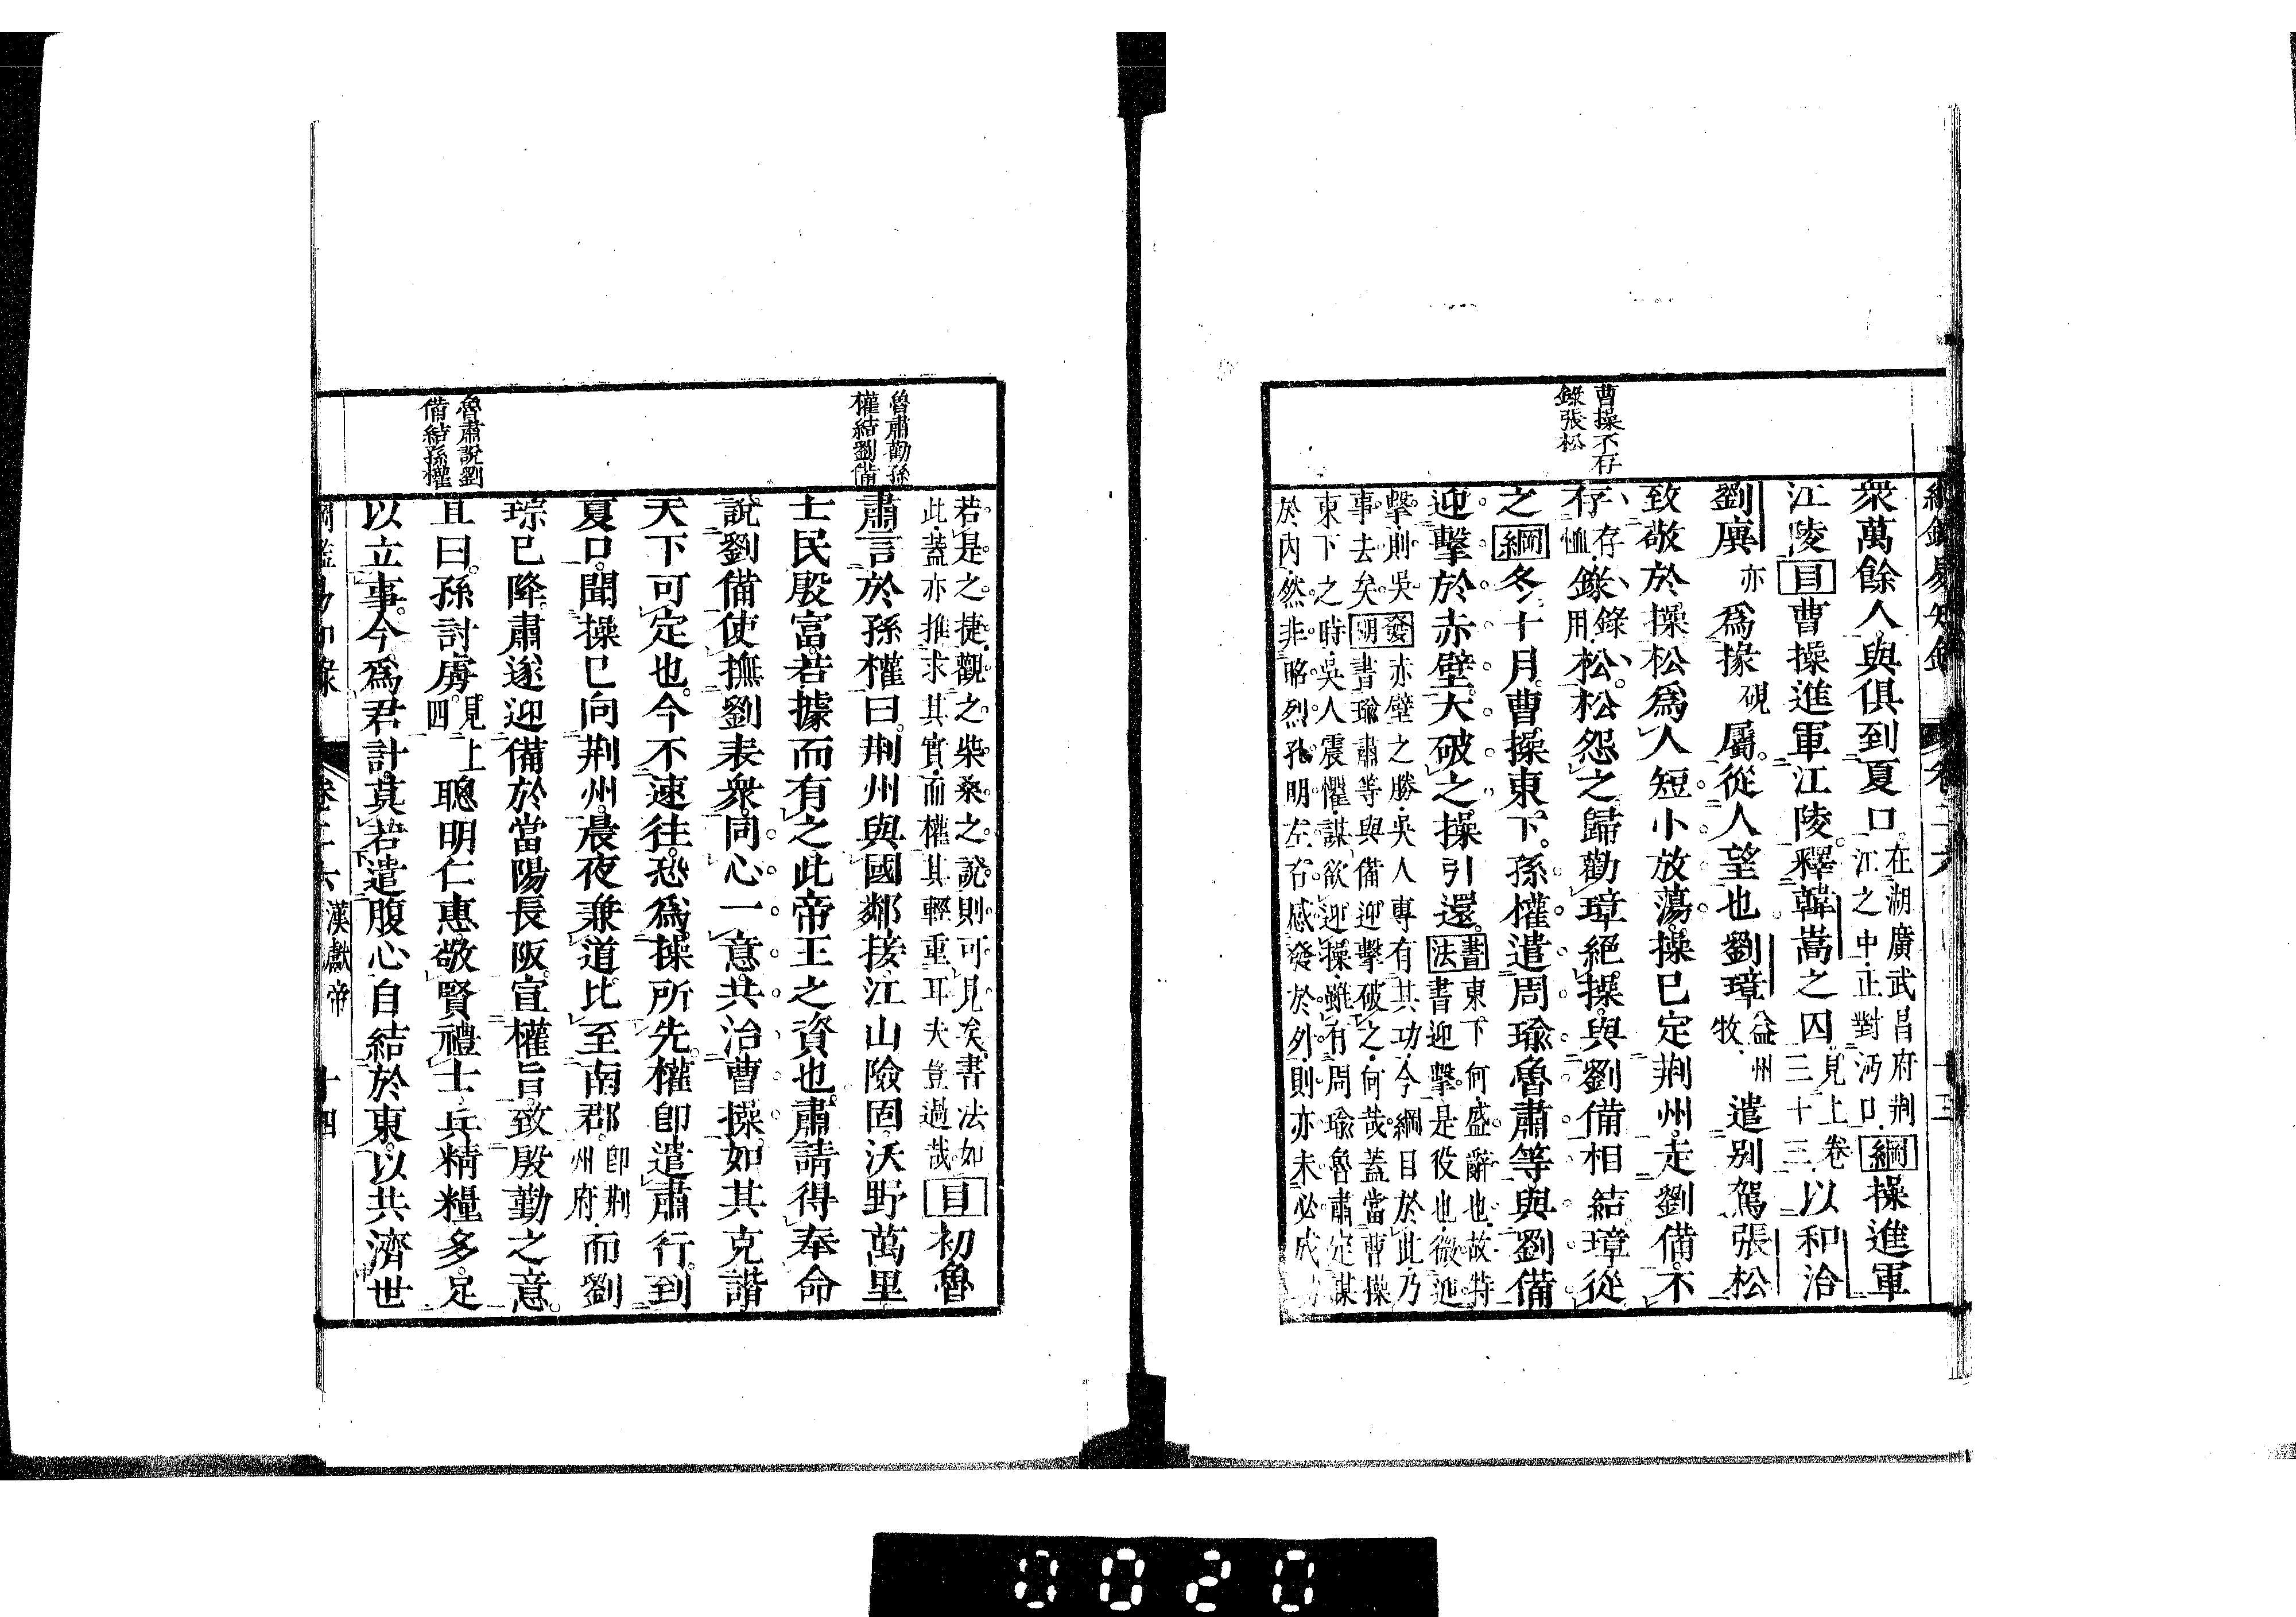 曹操不存
錄張松
衆萬餘人與俱到夏口。在湖廣武昌府荆
江之中正對沔口綱操進軍
江陵目曹操進軍江陵。釋韓嵩之囚見上卷
三十三以和洽
劉廙亦爲掾硯屬。從人望也劉璋益州
牧遣別駕張松
致敬於操松爲人短小放蕩。操已定荆州。走劉備。不
存、存
恤錄、錄
用松、松怨之歸勸璋絕操。與劉備相結璋從
之綱冬十月。曹操東下。孫權遣周瑜魯肅等與劉備
迎擊於赤壁大破之操引還。書法東下何盛辭也故特
書迎擊是役也微迎
擊則吳
事去矣發明赤壁之勝吳人專有其功今綱目於此乃
書瑜肅等與備迎擊破之何哉蓋當曹操
東下之時吳人震懼謀欲迎操雖有周瑜魯肅定謀
於內然非昭烈孔明左右感發於外則亦未必成功
魯肅勸孫
權結劉備
魯肅說劉
備結孫權
若是之捷觀之柴桑之說則可見矣書法如
此蓋亦推求其實而權其輕重耳夫豈過哉目初魯
肅言於孫權曰。荆州與國鄰接江山險固沃野萬里
士民殷富。若據而有之此帝王之資也。肅請得奉命
說劉備使撫劉表衆。同心一意共治曹操。如其克諧
天下可定也。今不速往。恐爲操所先。權即遣肅行。到
夏口。聞操已向荆州。晨夜兼道比至南郡。即荆
州府而劉
琮已降。肅遂迎備於當陽長阪。宣權旨。致殷勤之意。
且曰。孫討虜。見上
四聰明仁惠敬賢禮士。兵精糧多。足
以立事。今爲君計。莫若遣腹心自結於東。以共濟世
漢獻帝
十四